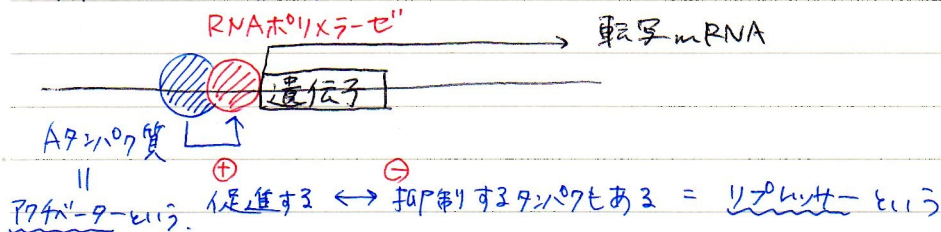 RNAポリメラーゼ
転写mRNA
遺伝子
Aタンパク質
||
⊕ ⊖
アクチベーターという. 促進する ↔ 抑制するタンパクもある = リプレッサーという